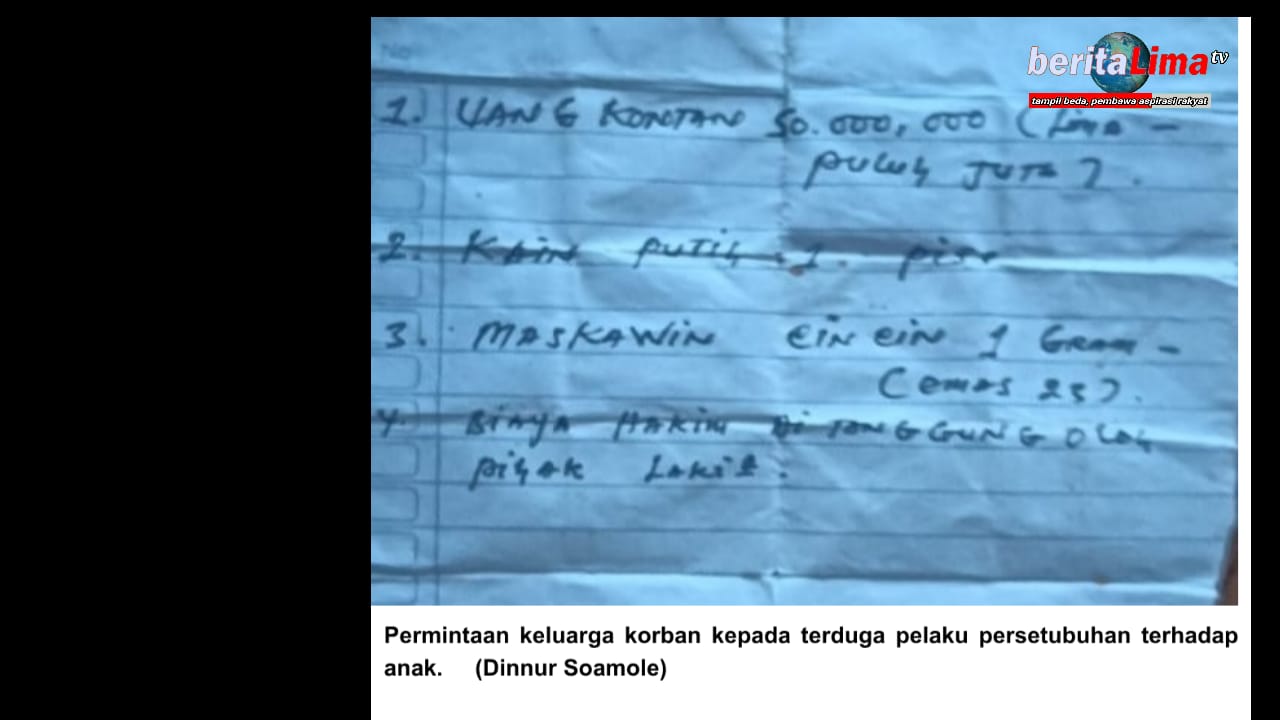 beritaLima tv
tampil beda, pembawa aspirasi rakyat
No
1. UANG KONTAN 50.000,000 (Lima -
PULUH JUTA).
2. KAIN PUTIH . 1.
3. MASKAWIN CINCIN 1 GRAM -
(emas 23).
4. BIAYA HAKIM DI TANGGUNG OLEH
PIHAK LAKI2.
Permintaan keluarga korban kepada terduga pelaku persetubuhan terhadap
anak. (Dinnur Soamole)